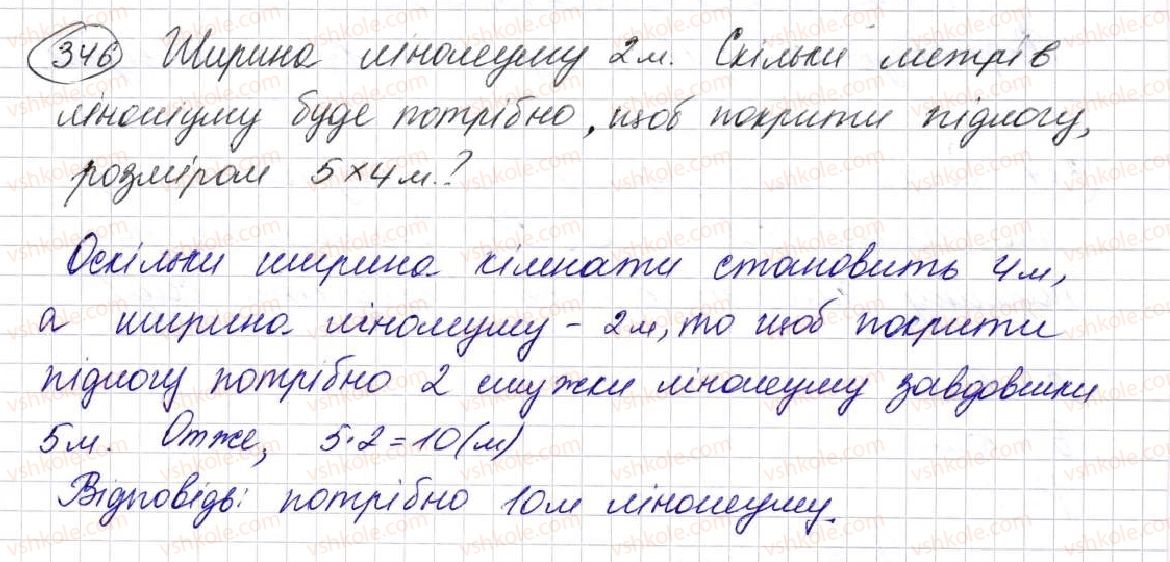 346 Ширина лінолеуму 2м. Скільки метрів
лінолеуму буде потрібно, щоб покрити підлогу,
розміром 5×4м.?
Оскільки ширина кімнати становить 4м,
а ширина лінолеуму - 2м, то щоб покрити
підлогу потрібно 2 смужки лінолеуму завдовшки
5м. Отже, 5·2=10(м)
Відповідь: потрібно 10м лінолеуму.